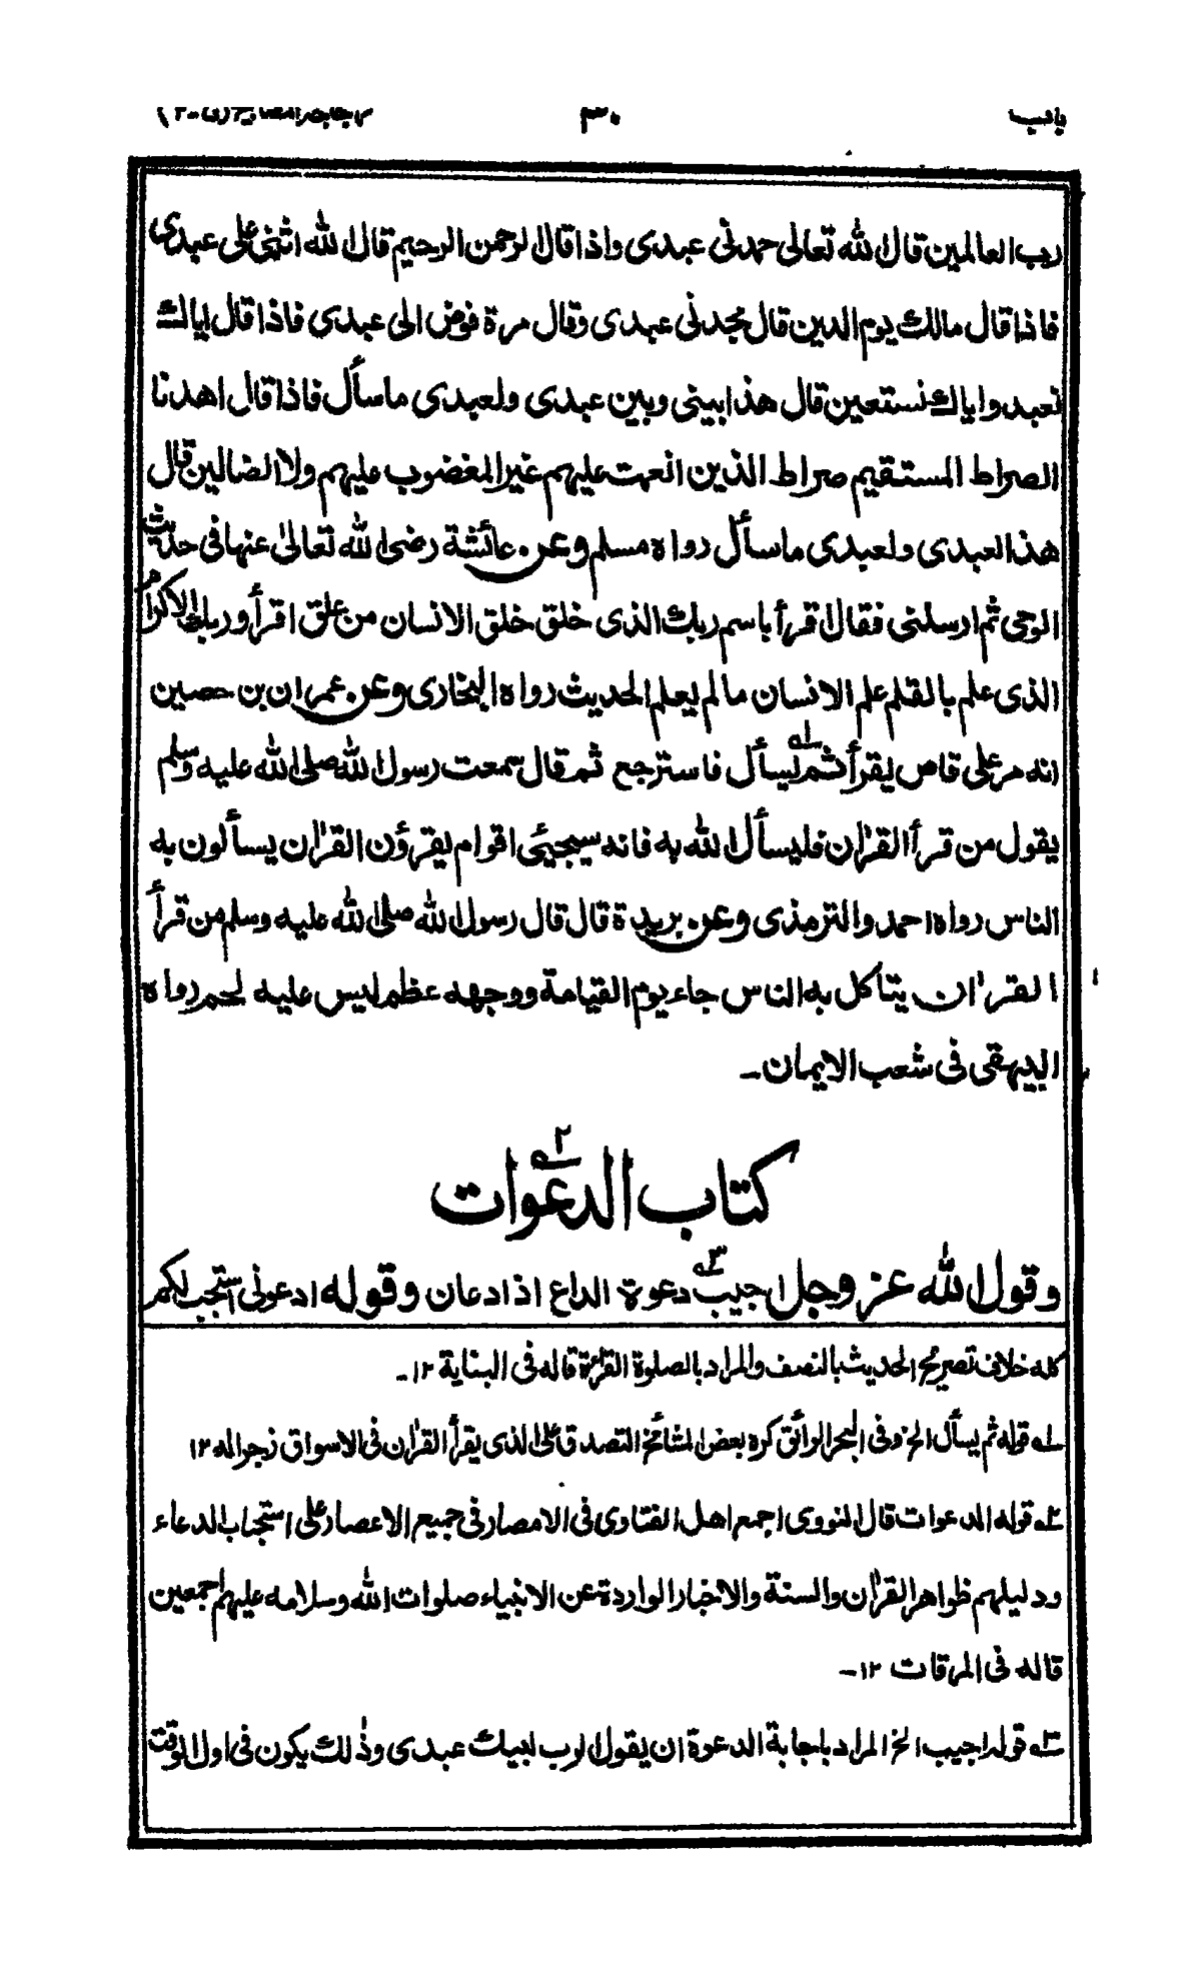 باب ٣٠ زجاجة المصابيح (ج-٢)
رب العالمين قال الله تعالى حمدنى عبدى واذا قال الرحمن الرحيم قال الله اثنى على عبدى
فاذا قال مالك يوم الدين قال مجدنى عبدى وقال مرة فوض الى عبدى فاذا قال اياك
نعبد واياك نستعين قال هذا بينى وبين عبدى ولعبدى ماسأل فاذا قال اهدنا
الصراط المستقيم صراط الذين انعمت عليهم غير المغضوب عليهم ولا الضالين قال
هذا لعبدى ولعبدى ماسأل رواه مسلم وعن عائشة رضى الله تعالىٰ عنها فى حديث
الوحى ثم ارسلنى فقال اقرأ باسم ربك الذى خلق خلق الانسان من علق اقرأ وربك الاكرم
الذى علم بالقلم علم الانسان مالم يعلم الحديث رواه البخارى وعن عمران بن حصين
انه مر على قاص يقرأ ثم يسأل ١ه فاسترجع ثم قال سمعت رسول الله صلى الله عليه وسلم
يقول من قرأ القرٰان فليسأل الله به فانه سيجيئى اقوام يقرؤن القرٰان يسألون به
الناس رواه احمد والترمذى وعن بريدة قال قال رسول الله صلى الله عليه وسلم من قرأ
القرٰان يتاكل به الناس جاء يوم القيامة ووجهه عظم ليس عليه لحم رواه
البيهقى فى شعب الايمان۔
كتاب الدعوات ٢ه
وقول الله عز وجل اجيب ٣ه دعوة الداع اذا دعان وقوله ادعونى استجب لكم
كله خلاف تصريح الحديث بالنصف والمراد بالصلوة القراءة قاله فى البناية ١٢۔
١ه قوله ثم يسأل الخ وفى البحر الرائق كره بعض المشائخ التصدق على الذى يقرأ القرٰان فى الاسواق زجرا له ١٢
٢ه قوله الدعوات قال النووى اجمع اهل الفتاوى فى الامصار فى جميع الاعصار على استحباب الدعاء
ودليلهم ظواهر القرٰان والسنة والاخبار الواردة عن الانبياء صلوات الله وسلامه عليهم اجمعين
قاله فى المرقات ١٢۔
٣ه قوله اجيب الخ المراد باجابة الدعوة ان يقول الرب لبيك عبدى وذٰلك يكون فى اول الوقت